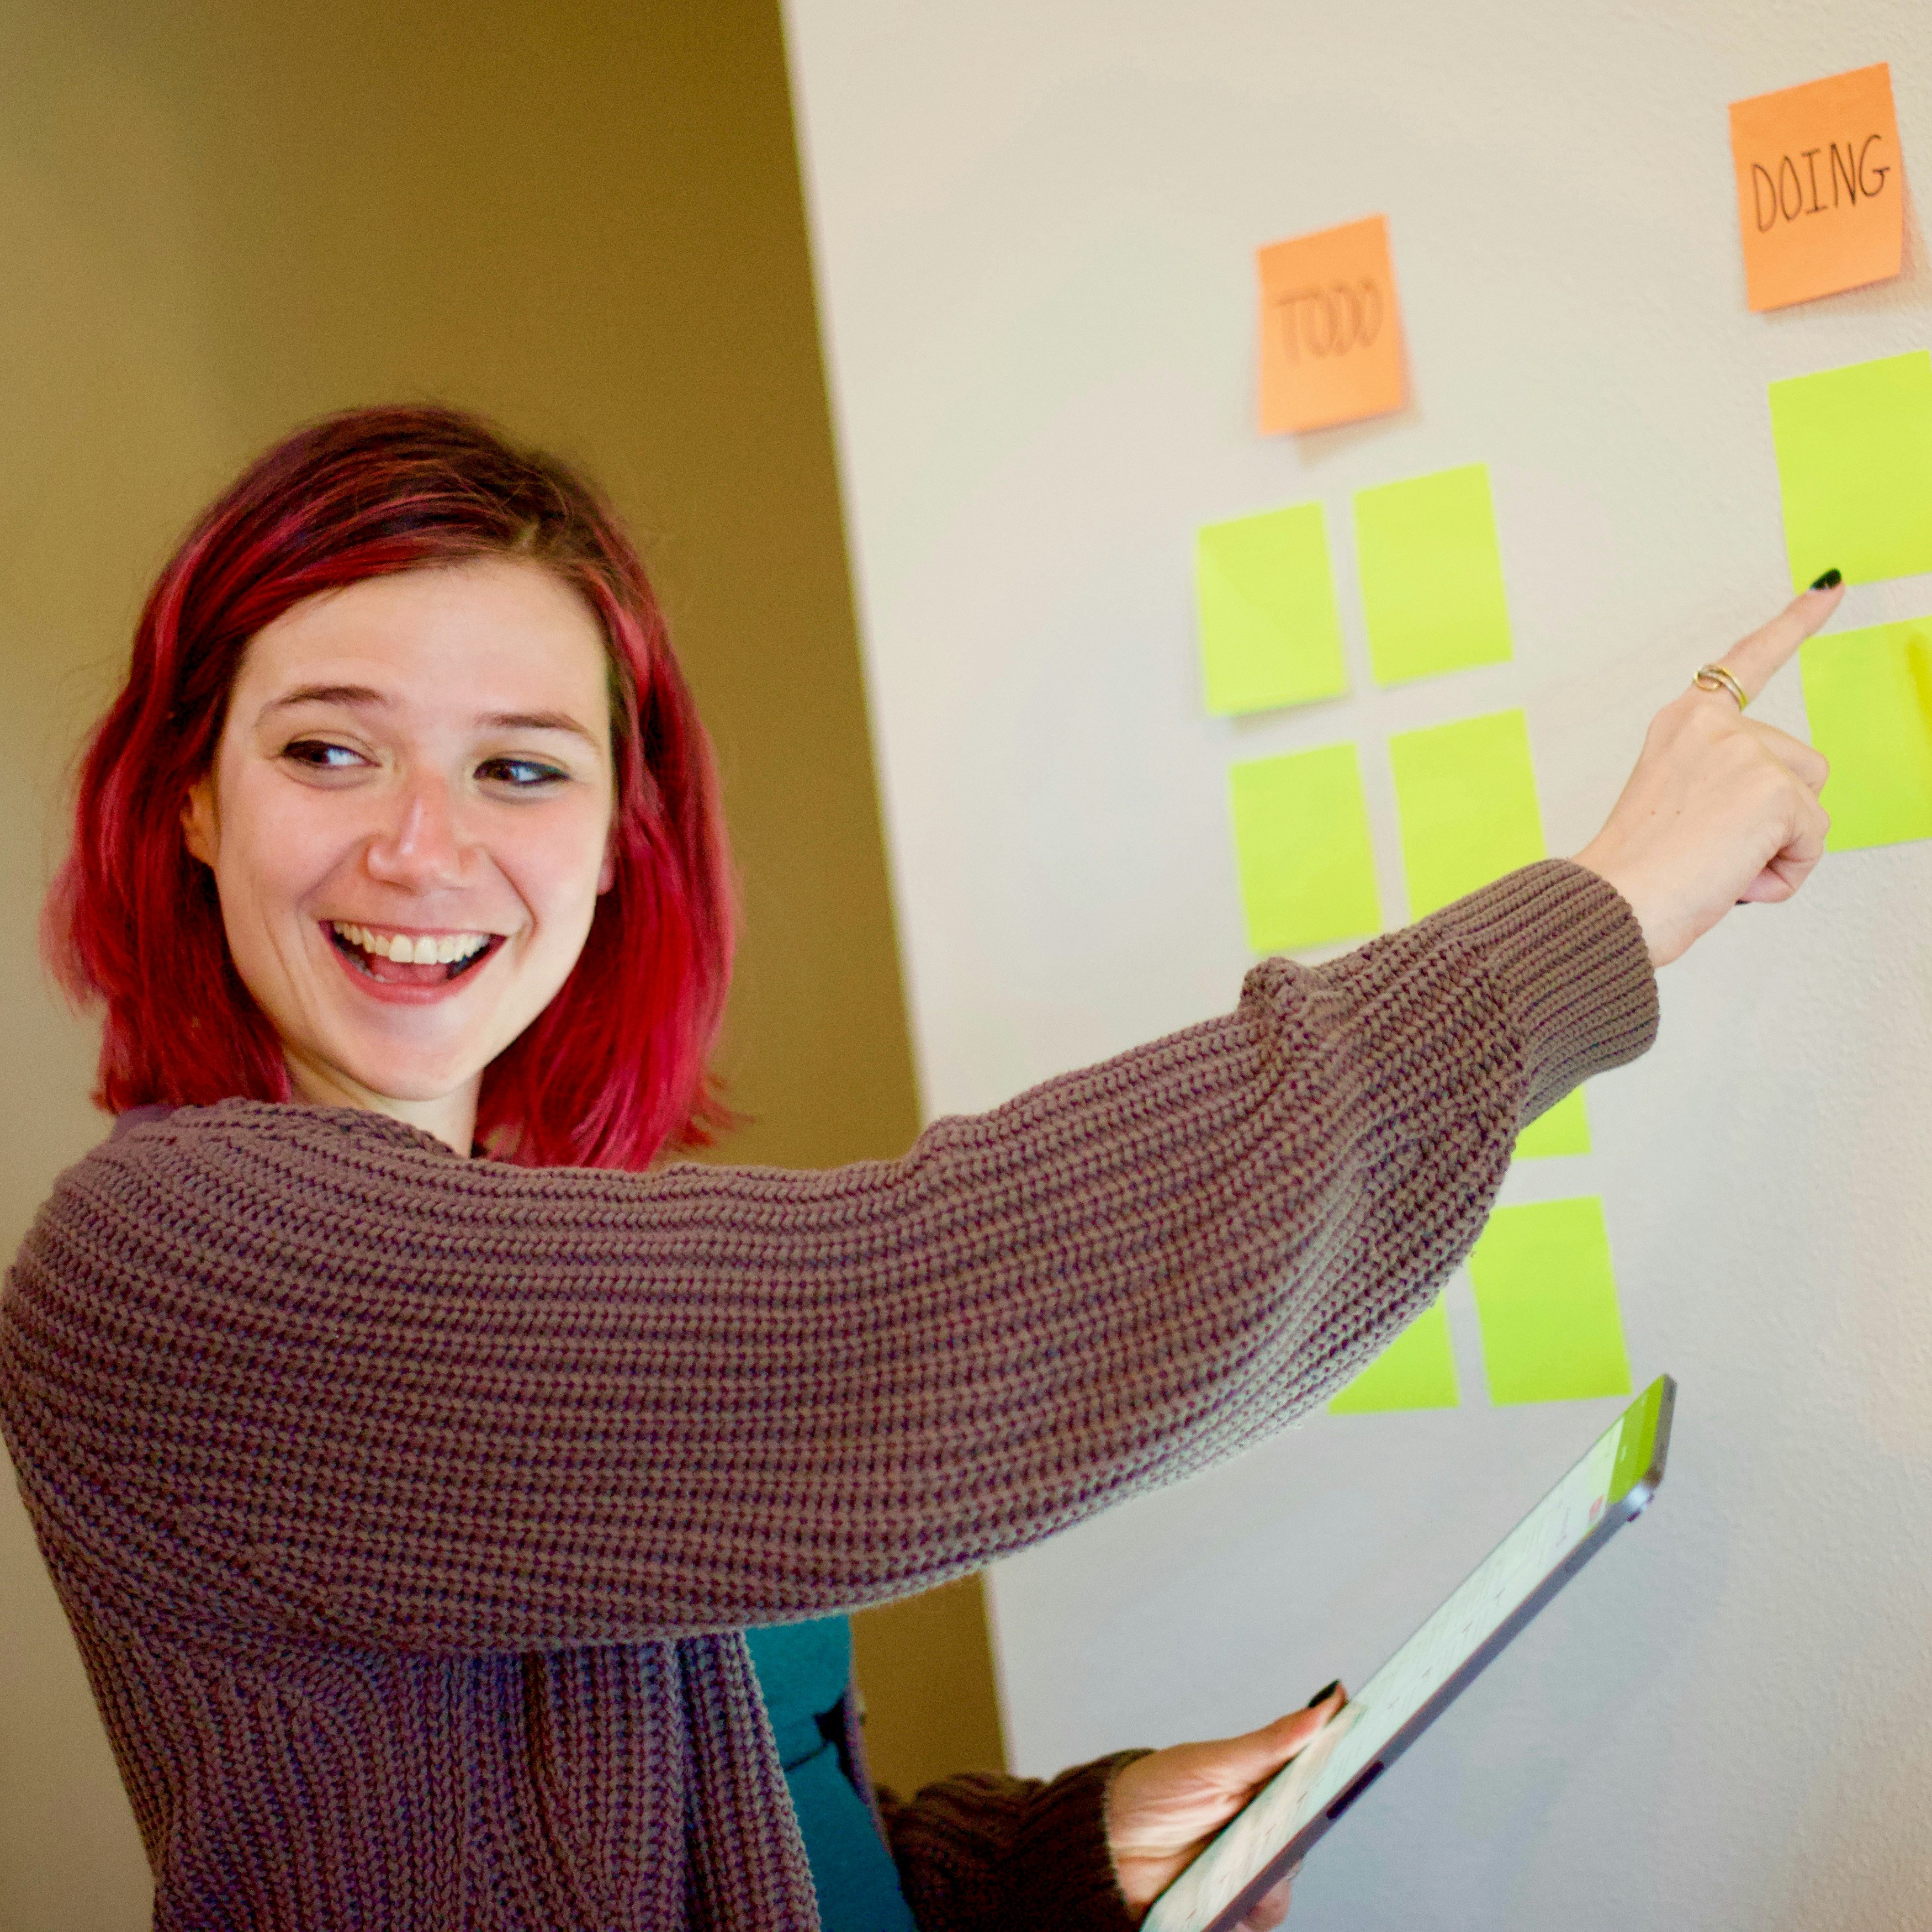 TODO
DOING